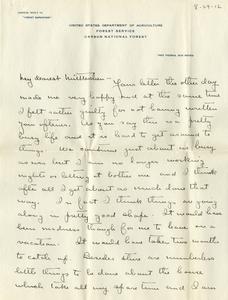 8-29-12
UNITED STATES DEPARTMENT OF AGRICULTURE
FOREST SERVICE
CARSON NATIONAL FOREST
My dearest – Your letter the other day
made me very happy and at the same time
I felt rather guilty for not having written
you oftener. As you say this is a pretty
busy life and it is hard to get around to
things. We sometimes just about as busy
as ever but I am no longer working
nights or letting it bother me and I think
after all I get about as much done that
way. In fact I think we are going
along in pretty good shape. It would have
been madness though for me to leave on a
vacation. It would have taken two months
to catch up. Besides there are numberless
little things to be done about the house
which take all my spare time and I am